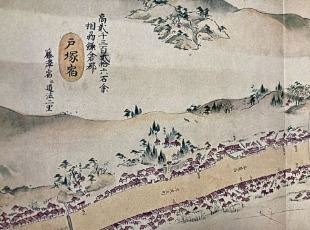 高弐千三百弐拾六石余
相州鎌倉郡
戸塚宿
藤澤宿江道法二里